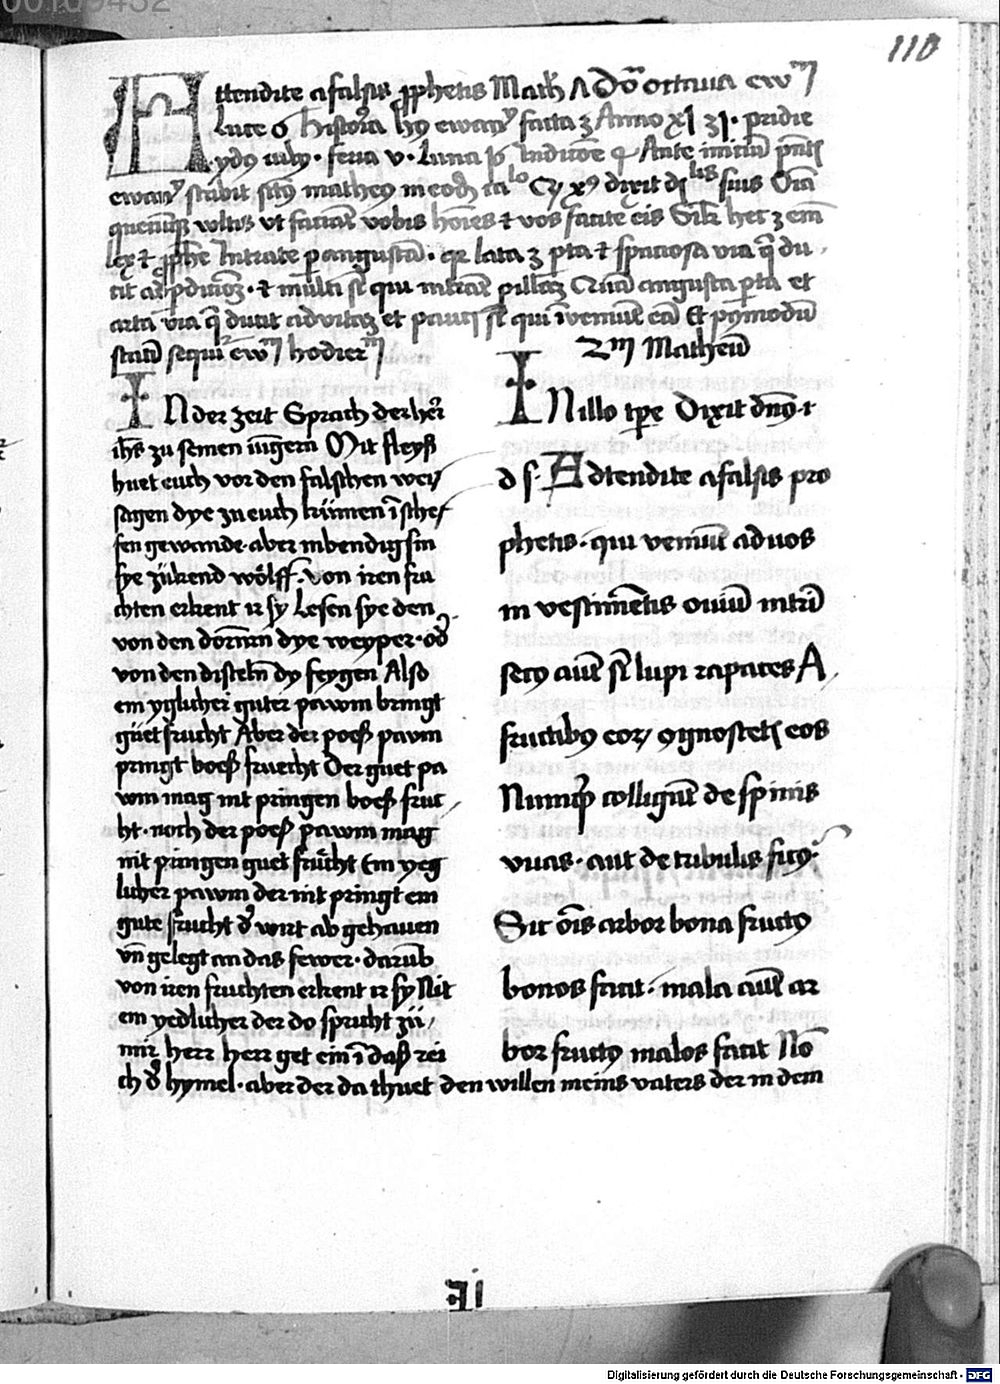 110
Attendite a falsis pphetis Math A Dō octaua ew̄
Luce 6 historia hꝰ ewanᵞ facta ʒ Anno xl ʒl · pridie
ydꝰ · feria v · luna Indicōe Ante initiū
ewanᵞ scribit matheus in eodē xꝰ dixit suis Oīa
quecūqꝫ voltis vt faciāt vobis hoīes ⁊ vos facite eis Sicut hec ʒ em̄
lex ⁊ pphē Intrate p angustā · qꝛ lata ʒ pta ⁊ spaciosa via q̄ du
cit ad pdicionē · ⁊ multi sūt qui intrāt p illaʒ angusta pta et
arta via q̄ ducit ad vitaʒ et pauci sūt qui īueniūt eā Et
statū sequiᵗ ew̄ hodiern̄
IN der zeit Sprach der her̄
ih̄s zu seinen iūgern Mit fleyß
huet euch vor den falschen wey
sagen dye zu euch kūmen ī schef
fen gewande · aber inbendig sin
sye zükend wölff · von iren fru
chten erkent ir sy Lesen sye den
von den dornnn dye weyper · od̓
von den disteln dy feygen Also
ein yglicher guter pawm bringt
güet frucht Aber der poeß pawm
pringt boeß fruecht Der guet pa
wm mag nit pringen boeß fruc
ht · noch der poeß pawm mag
nit pringen guet frücht Ein yeg
licher pawm der nit pringt ein
gute frucht d̓ wirt ab gehauen
vn̄ gelegt an das fewer · darūb
von iren fruchten erkent ir sy Nit
ein yedlicher der do spricht zü
mir herr herr get ein ī daß rei
ch d̓ hymel · aber der da thuet den willen meins vaters der in dem
2m Matheū
IN illo tpe Dixit dn̄s i
d s · Adtendite a falsis pro
phetis · qui veniūt ad uos
in vestimētis ouiū intrī
secꝰ aūt sūt lupi rapaces A
fructibꝰ eoꝝ ꝯgnoscetꝭ eos
Numqͥd colligūt de spinis
vuas · aut de tribulis ficꝰ
Sic oīs arbor bona fructꝰ
bonos facit · mala aūt ar
bor fructꝰ malos facit Nō
Digitalisierung gefördert durch die Deutsche Forschungsgemeinschaft - DFG